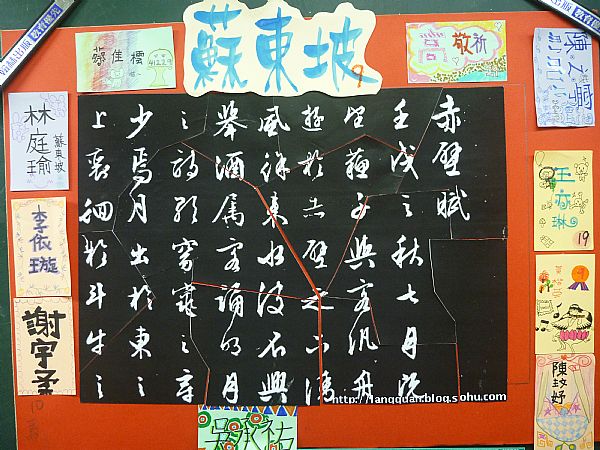 蘇東坡
9
蔡佳
41229
敬祈
林庭瑜
蘇東坡
李依璇
謝宇柔
王亦琳
19
陳玟妤
吳承祐
赤壁賦
壬戌之秋七月既
望蘇子與客汎舟
遊於赤壁之下清
風徐來水波不興
舉酒属客誦明月
之詩歌窈窕之章
少焉月出於東之
上裵徊於斗牛之
http://langquan.blog.sohu.com